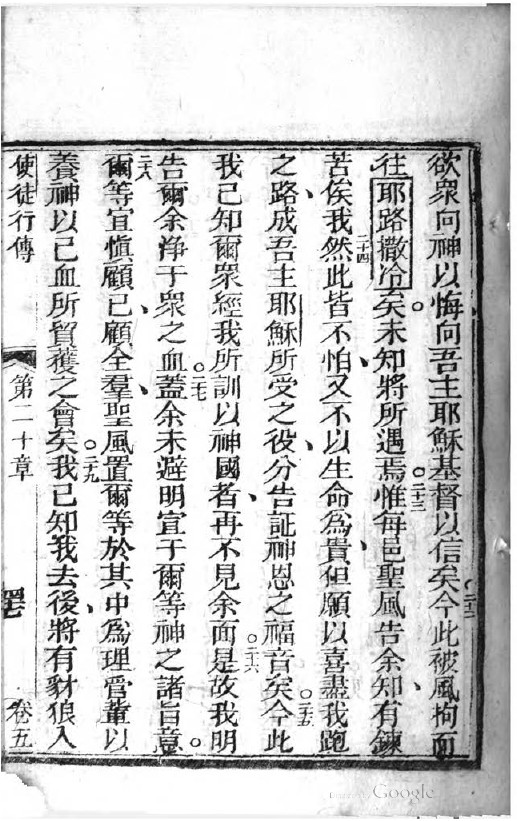 欲衆向神以悔向吾主耶穌基督以信矣二二今此被風拘而
往耶路撒冷矣。未知將所遇焉。二三惟每邑聖風告余知有鍊
苦俟我二四然此皆不怕、又不以生命為貴、但願以喜盡我跑
之路、成吾主耶穌所受之役、分告証神恩之福音矣。二五今此
我已知爾衆經我所訓以神國者、再不見余面。二六是故我明
告爾余淨于衆之血。二七蓋余未避明宣于爾等神之諸旨意。
二八爾等宜慎顧己、顧全羣、聖風置爾等於其中為理管董以
養神以己血所買獲之會矣。二九我已知我去後、將有豺狼入
使徒行傳 第二十章 卷五
Google